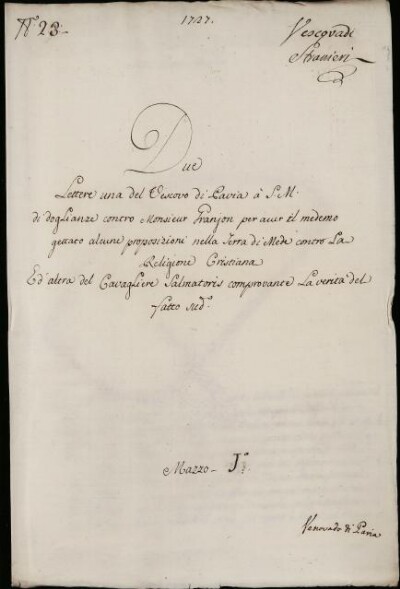 1727.
N° 23.
Vescovadi
Stranieri
Due
Lettere una del Vescovo di Pavia à S. M.
di doglianze contro Monsieur Granjon per aver il medemo
gettato alcune proposizioni nella Terra di Mede contro La
Religione Cristiana
Ed' altra del Cavagliere Salmatoris comprovante La verità del
fatto sud.°
Mazzo - J.°
Vescovado di Pavia